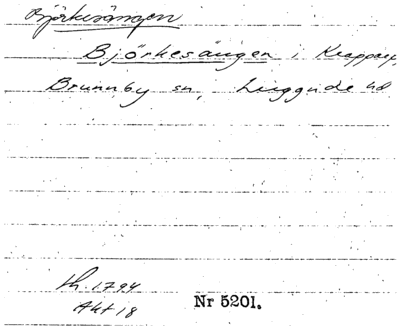 Björkesängen
Björkesängen i Krapparp,
Brunnby sn, Luggude hd
th. 1794
Akt 18
Nr 5201.